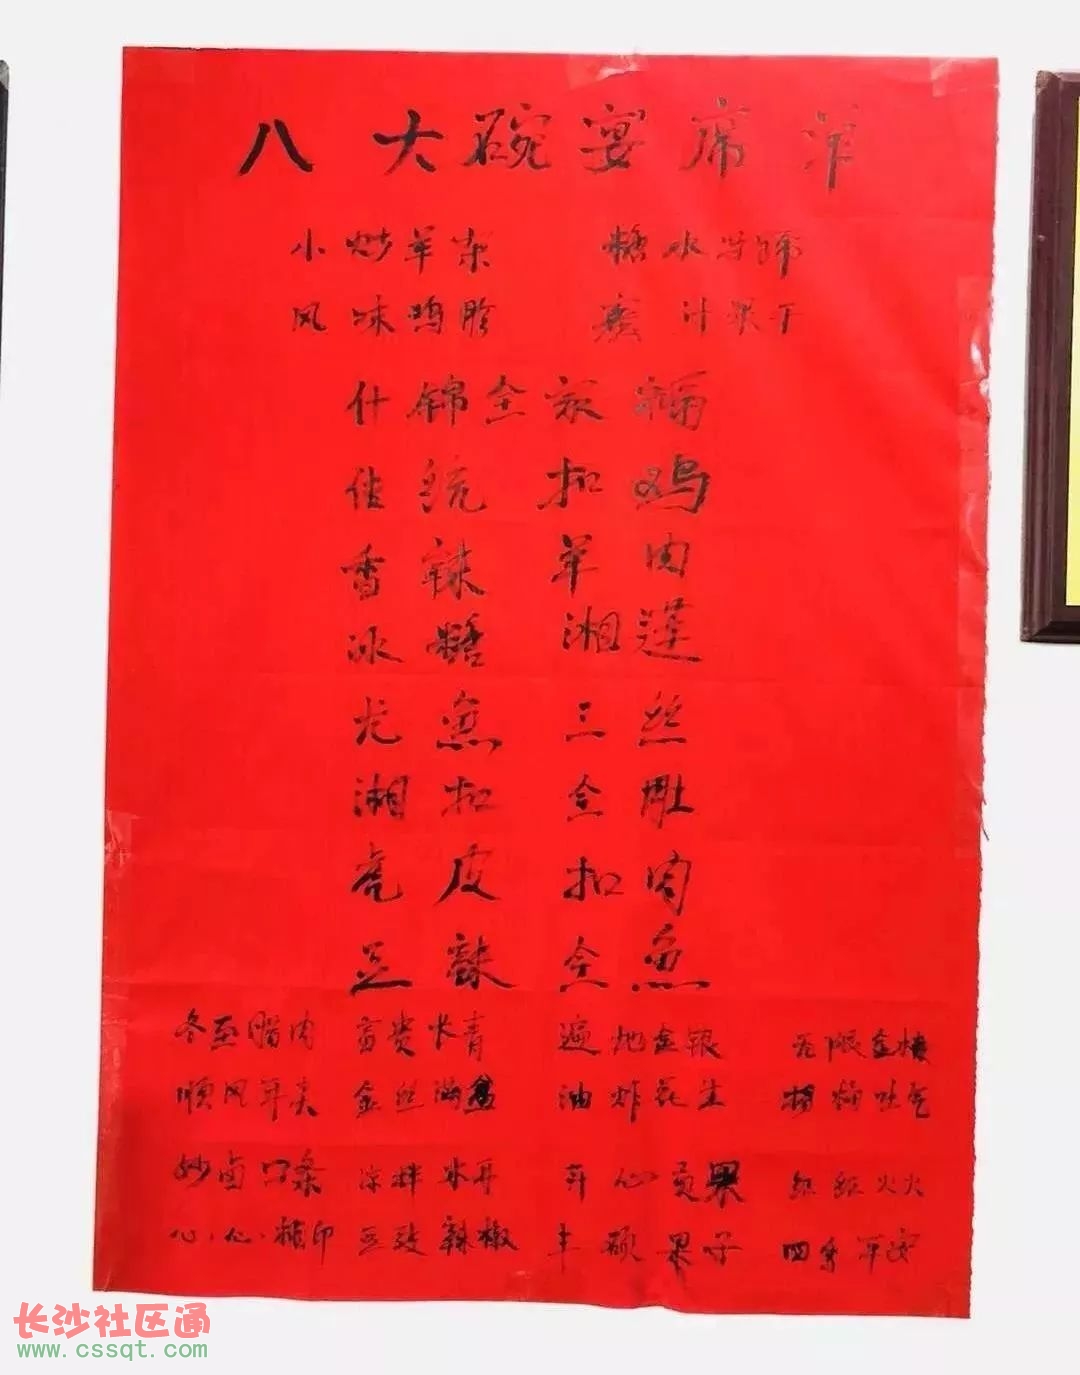 八大碗宴席
小炒羊架 糖水
风味鸡胗 蜜汁果干
什锦全家福
传统扣鸡
香辣羊肉
冰糖湘莲
尤鱼三丝
湘扣全
虎皮扣肉
豆豉全鱼
冬至腊肉 富贵长青 遍地金银 无限金
顺风耳尖 金丝满 油炸花生 扬梅吐气
妙卤口条 凉拌木耳 开心贡果 红红火火
心心相印 豆豉辣椒 丰硕果子 四季平安
长沙社区通
www.cssqt.com